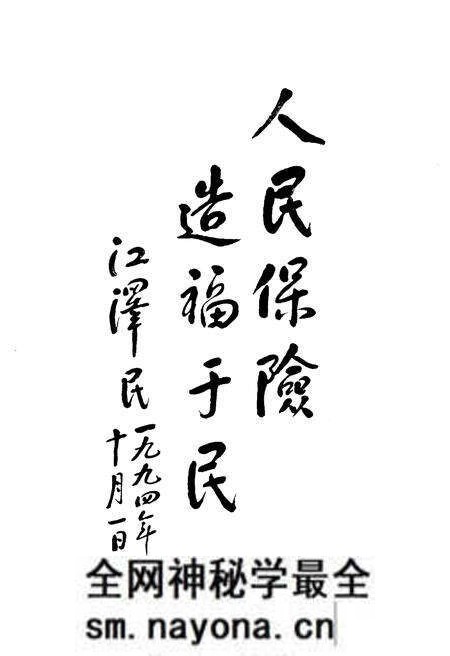 人民保險
造福于民
江澤民
一九九四年
十月一日
全网神秘学最全
sm.nayona.cn